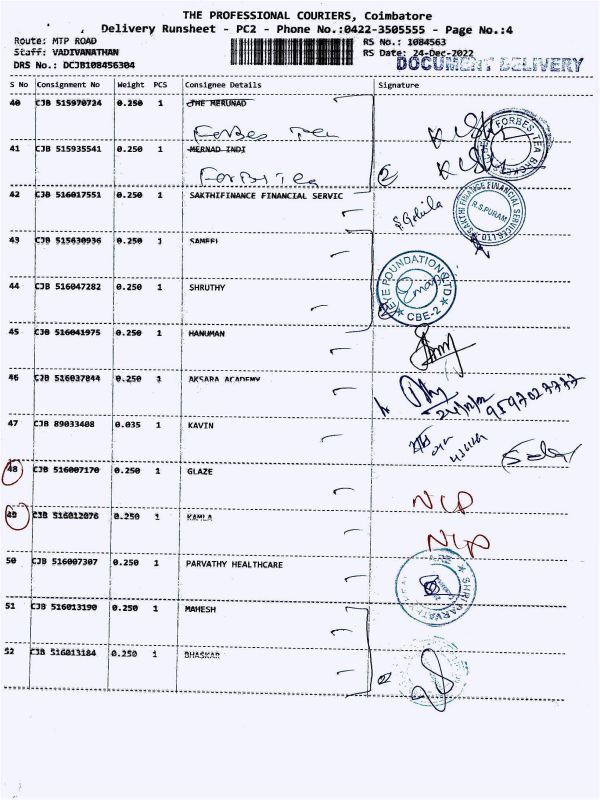 THE PROFESSIONAL COURIERS, Coimbatore
Delivery Runsheet - PC2 - Phone No.:0422-3505555 - Page No.:4
Route: MTP ROAD
RS No. : 1084563
Staff: VADIVANATHAN
RS Date: 24-Dec-2022
DRS No.: DCJB108456304
DOCUMENT DELIVERY
S No Consignment No Weight PCS Consignee Details Signature
40 CJB 515970724 0.250 1 THE MERUNAD
Forbes Tea
41 CJB 515935541 0.250 1 MERNAD INDI
Forbes Tea
FORBES TEA
42 CJB 516017551 0.250 1 SAKTHIFINANCE FINANCIAL SERVIC
SAKTHI FINANCE FINANCIAL SERVICES LTD
R.S.PURAM
43 CJB 515630936 0.250 1 SAMEEL
44 CJB 516047282 0.250 1 SHRUTHY
EYE FOUNDATION LTD
CBE-2
45 CJB 516041975 0.250 1 HANUMAN
46 CJB 516037844 0.250 1 AKSARA ACADEMY
24/12/22 9597027777
47 CJB 89033408 0.035 1 KAVIN
48 CJB 516007170 0.250 1 GLAZE
NCP
49 CJB 516012076 0.250 1 KAMLA
NCP
50 CJB 516007307 0.250 1 PARVATHY HEALTHCARE
51 CJB 516013190 0.250 1 MAHESH
52 CJB 516013184 0.250 1 BHASKAR